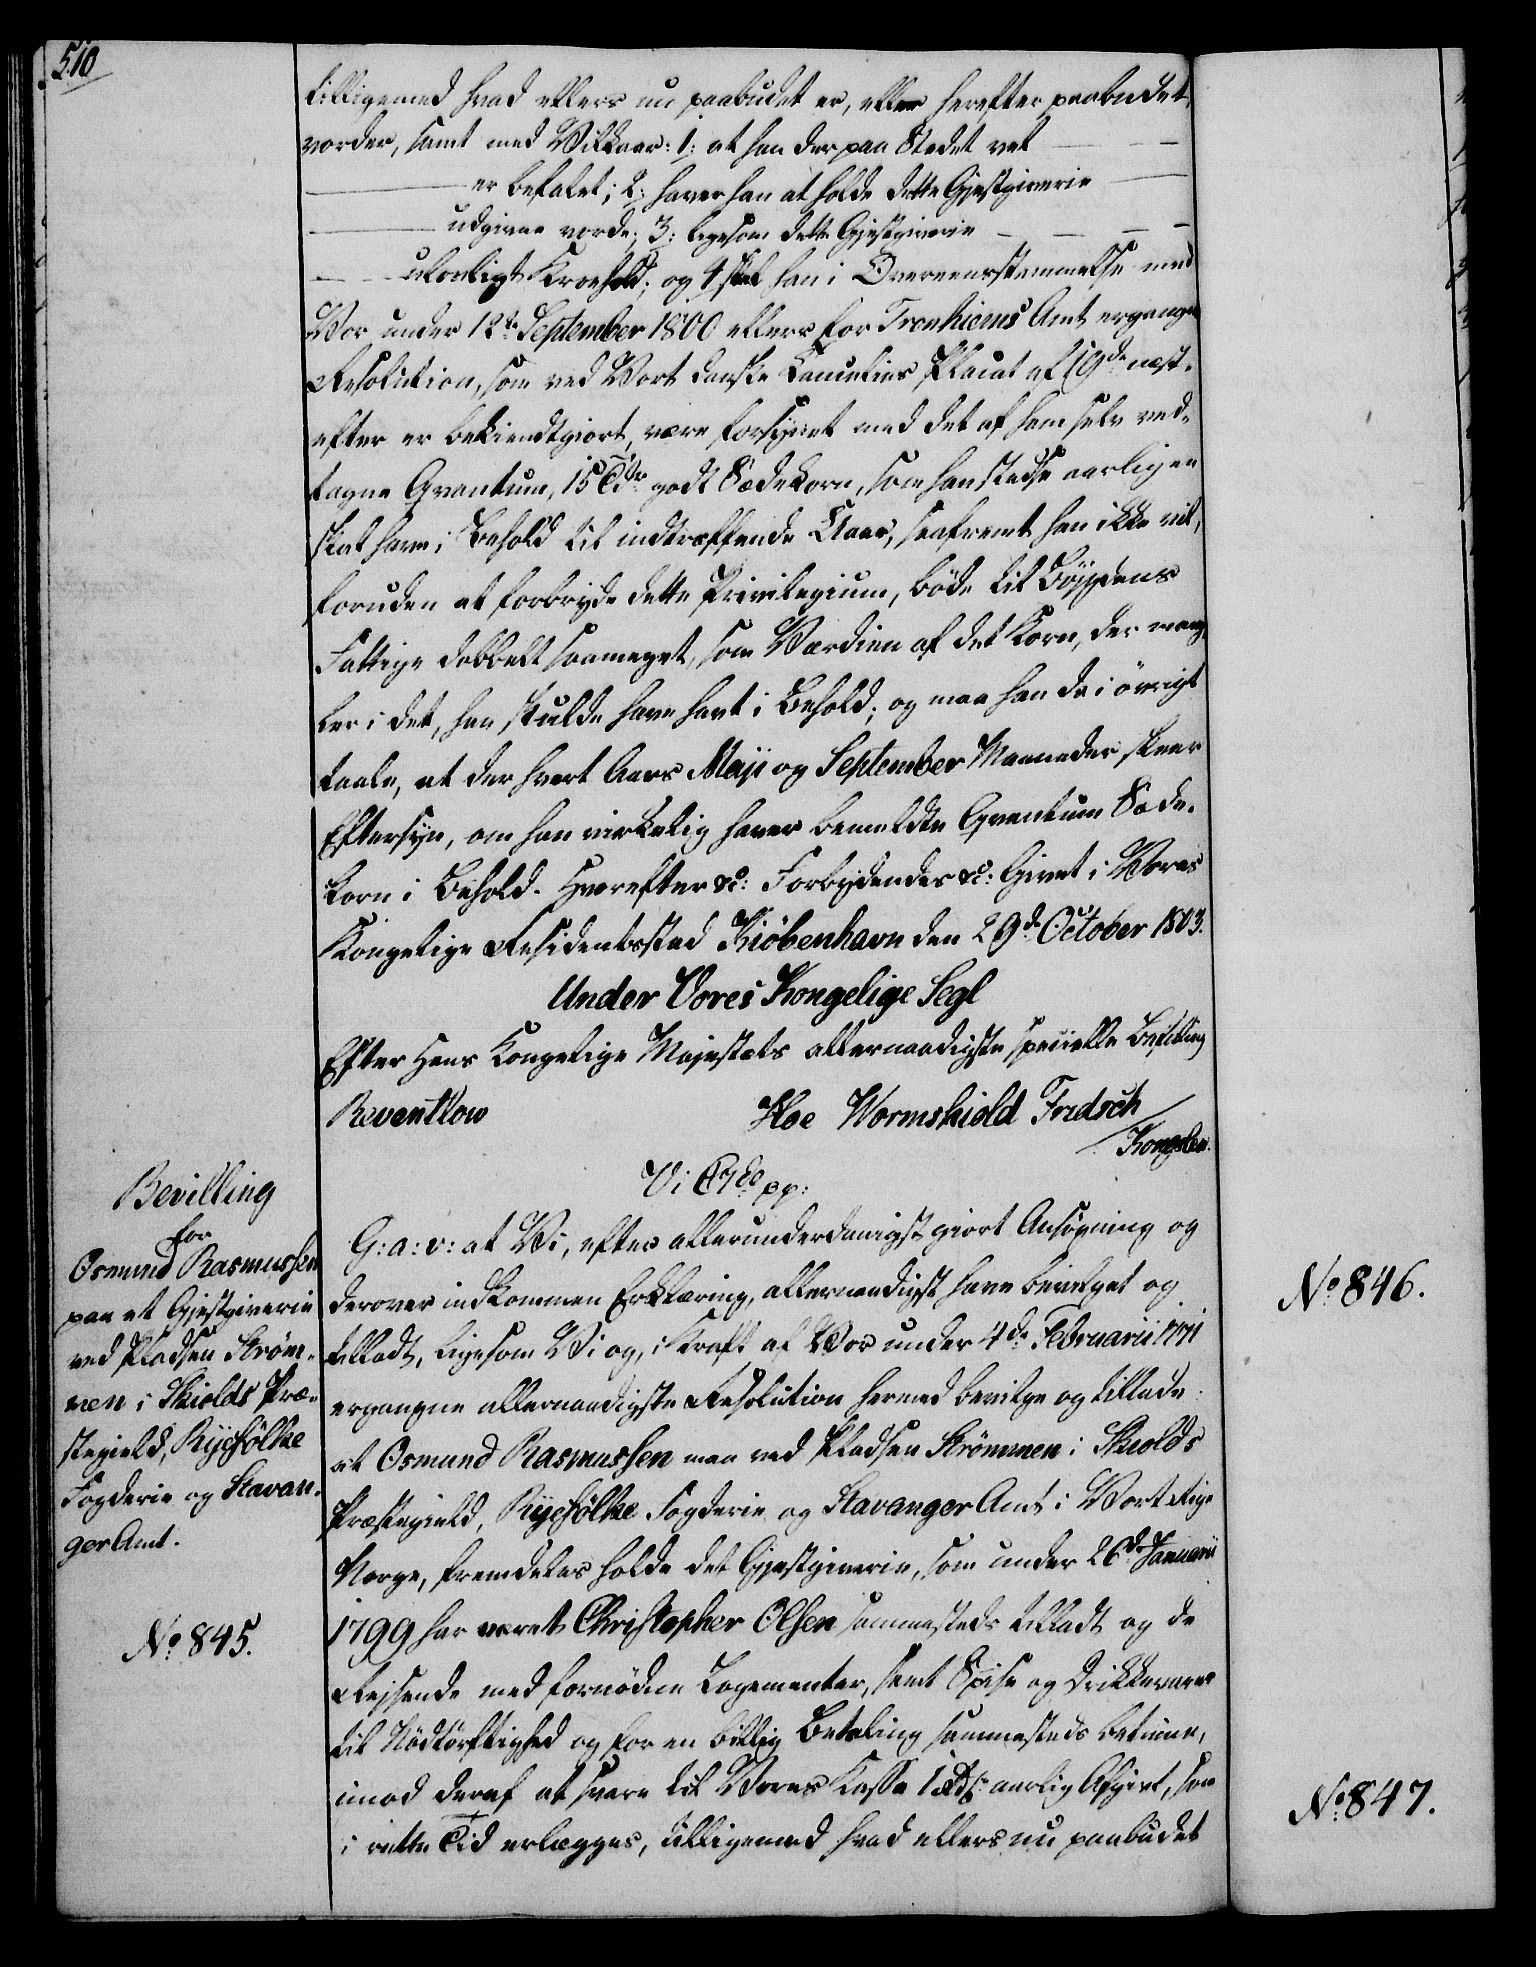 510
tilligemed hvad ellers nu paabudet er, eller herefter paabudet
vorder, samt med Vilkaar: 1: at han der paa Stedet vel
er befalet; 2: haver han at holde dette Gjestgiverie
udgivne vorde; 3: ligesom dette Gjestgiverie
ulovligt Kroehold; og 4 skal han i Overeensstemmelse med
Vor under 12te September 1800 ellers for Tronhiems Amt ergangne
Resolution, som ved Vort danske Cancelies Placat af 19de næst-
efter er bekiendtgiort, være forsynet med det af ham selv ved-
tagne Qvantum, 15 Tdr godt Sædekorn, som han stedse aarligen
skal have i Behold til indtræffende Vaar, saafremt han ikke vil,
foruden at forbryde dette Privilegium, bøde til Bøygdens
Fattige dobbelt saameget, som Værdien af det Korn, der mang-
ler i det, han skulde have havt i Behold; og maa han de i øvrigt
taale, at der hvert Aars Maji og September Maaneder skeer
Eftersyn, om han virkelig haver bemeldte Qvantum Sæde-
korn i Behold. Hvorefter &c: Forbydendes &c: Givet i Vores
Kongelige Residentsstad Kiøbenhavn den 29de October 1803.
Under Vores Kongelige Segl
Efter Hans Kongelige Majestæts allernaadigste specielle Befaling
Reventlow Koe Wormskiold Fridsch
/Kongslev.
Bevilling
for
Osmund Rasmussen
paa et Gjestgiverie
ved Pladsen Strøm-
men i Skiolds Præ-
stegield, Ryefølke
Fogderie og Stavan-
ger Amt.
No 845.
Vi C 7de pp:
G: a: v: at Vi, efter allerunderdanigst giort Ansøgning og
derover indkommen Erklæring, allernaadigst have bevilget og
tilladt, ligesom Vi og, i Kraft af Vor under 4de Februarii 1771
ergangne allernaadigste Resolution hermed bevilge og tillade
at Osmund Rasmussen maa ved Pladsen Strømmen i Skiolds
Præstegield, Ryefølke Fogderie og Stavanger Amt i Vort Rige
Norge, fremdeles holde det Gjestgiverie, som under 26de Januarii
1799 har været Christopher Olsen sammesteds tilladt og de
Rejsende med fornødne Logementer, samt Spise og Drikkevarer
til Nødtørftighed og for en billig Betaling sammesteds betiene,
imod deraf at svare til Vores Kasse 1 Rdr aarlig Afgivt, som
i rette Tid erlægges, tilligemed hvad ellers nu paabudet
No 846.
No 847.